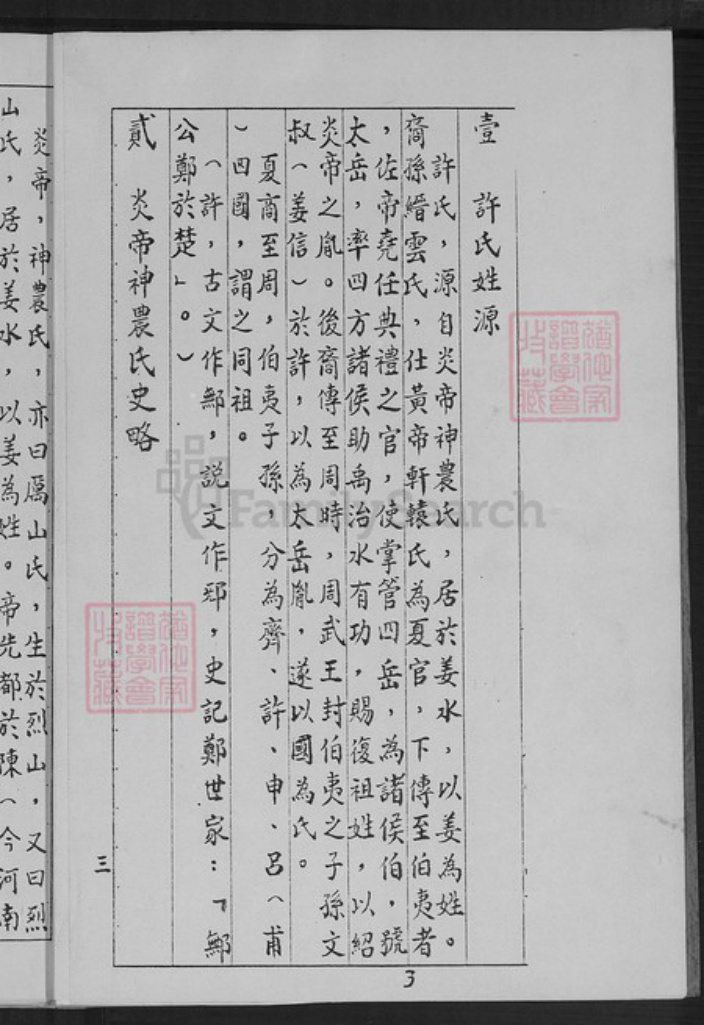 壹　許氏姓源
許氏，源自炎帝神農氏，居於姜水，以姜為姓。
裔孫縉雲氏，仕黃帝軒轅氏為夏官，下傳至伯夷者
，佐帝堯任典禮之官，使掌管四岳，為諸侯伯，號
太岳，率四方諸侯助禹治水有功，賜復祖姓，以紹
炎帝之胤。後裔傳至周時，周武王封伯夷之子孫文
叔（姜信）於許，以為太岳胤，遂以國為氏。
夏商至周，伯夷子孫，分為齊、許、申、呂（甫
）四國，謂之同祖。
（許，古文作鄦，說文作䣑，史記鄭世家：「鄦
公鄭於楚」。）
貳　炎帝神農氏史略
三
炎帝，神農氏，亦曰厲山氏，生於烈山，又曰烈
山氏，居於姜水，以姜為姓。帝先都於陳（今河南
3
FamilySearch